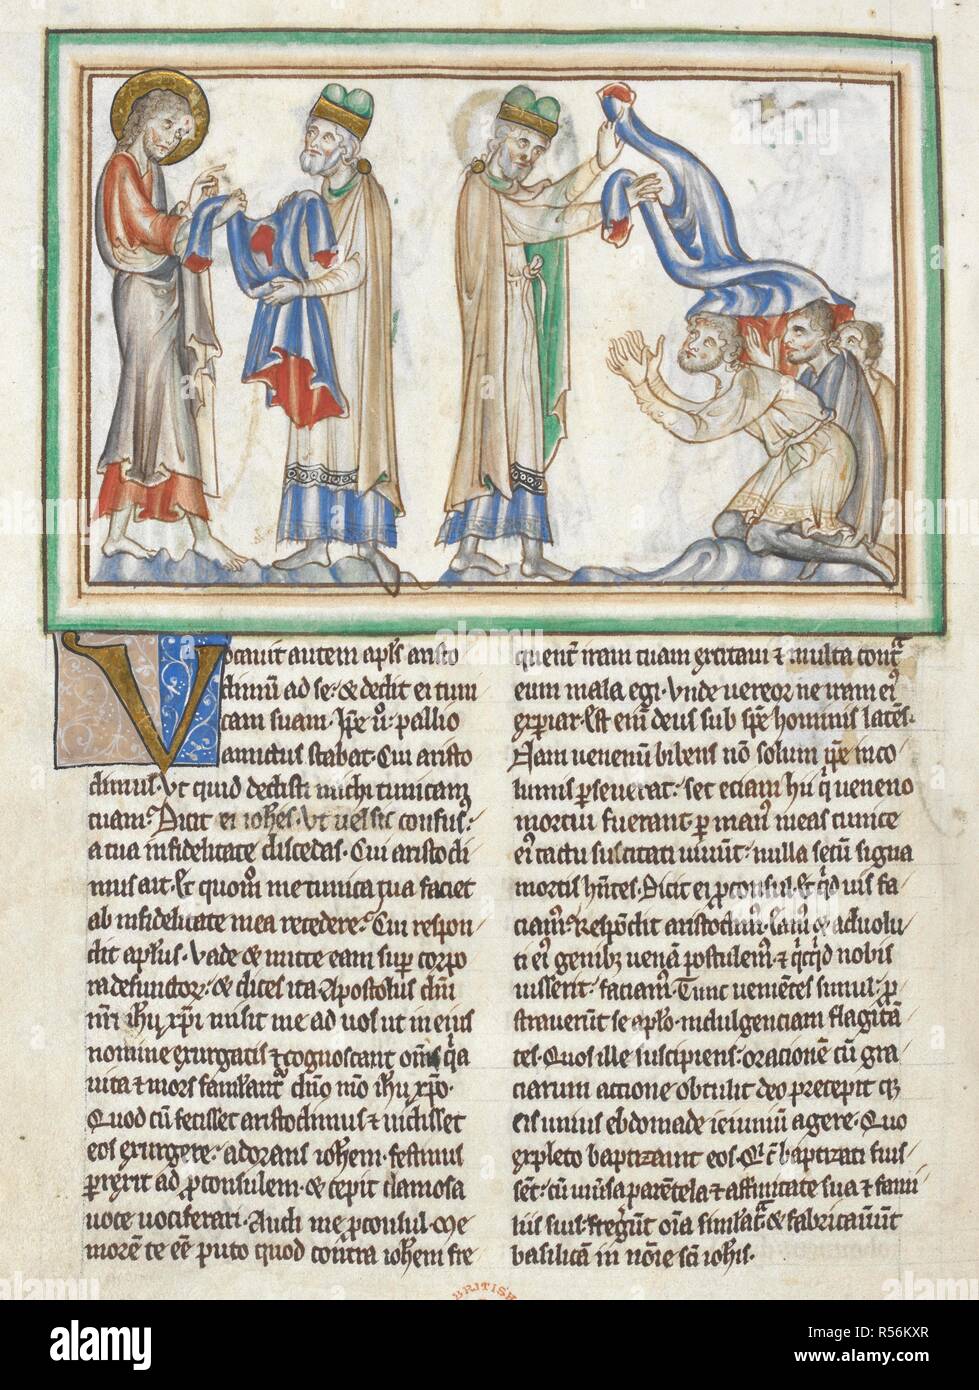 Vocauit autem apl's aristo
dimū ad se: & dedit ei tuni
cam suam. Ip̄e ū pallio
amictus stabat. Cui aristo
dimus. Ut quid dedisti michi tunicam
tuam? Dicit ei ioh̄es. Ut uel sic confus:
a tua infidelitate discedas. Cui aristodi
mus ait. Et quom̄o me tunica tua faciet
ab infidelitate mea recedere? Cui respon
dit apl'us. Vade & mitte eam sup corpo
ra defunctoꝝ: & dices ita. Apostolus dn̄i
nr̄i ih'u xp̄i misit me ad uos ut in eius
nomine exurgatis ⁊ cognoscant om̄s q̇a
uita ⁊ mors famulant̄ dn̄o meo ih'u xp̄o.
Quod cū fecisset aristodimus ⁊ uidisset
eos exurgere: adorans ioh'em. festinus
prexit ad proconsulem. & cepit clamosa
uoce uociferari. Audi me proconsul. Me
morem te eē puto quod contra ioh'em fre
quent' iram tuam excitaui ⁊ multa cont̄
eum mala egi. Vnde uereor ne iram ei'
experiar. Est enī deus sub spē hominis latēs.
Nam uenenū bibens nō solum ip̄e inco
lumis pseuerat: set eciam hii qui ueneno
mortui fuerant. p man' meas tunice
ei' tactu suscitati uiuūt: nulla secū signa
mortis hn̄tes. Dicit ei proconsul. Et q'd uis fa
ciam? Respōdit aristodim'. Eam' & aduolu
ti ei' genib; ueniā postulem'. ⁊ q'cq'd nobis
iusserit: faciam'. Tunc ueniētes simul: p
strauerūt se apl'o. indulgenciam flagitā
tes. Quos ille suscipiens: orationē cū gra
ciarum actione obtulit deo. precepit q;
eis unius ebdomade ieiuniū agere. Quo
expleto baptizauit eos. Q' cū baptizati fuis
sēt: cū uniusa parētela ⁊ affinitate sua ⁊ fami
liis suis. fregerūt om̄a simulacra & fabricauerūt
basilicā in noīe sc̄i ioh'is.
BRITISH
alamy
alamy
Image ID: R56KXR
www.alamy.com